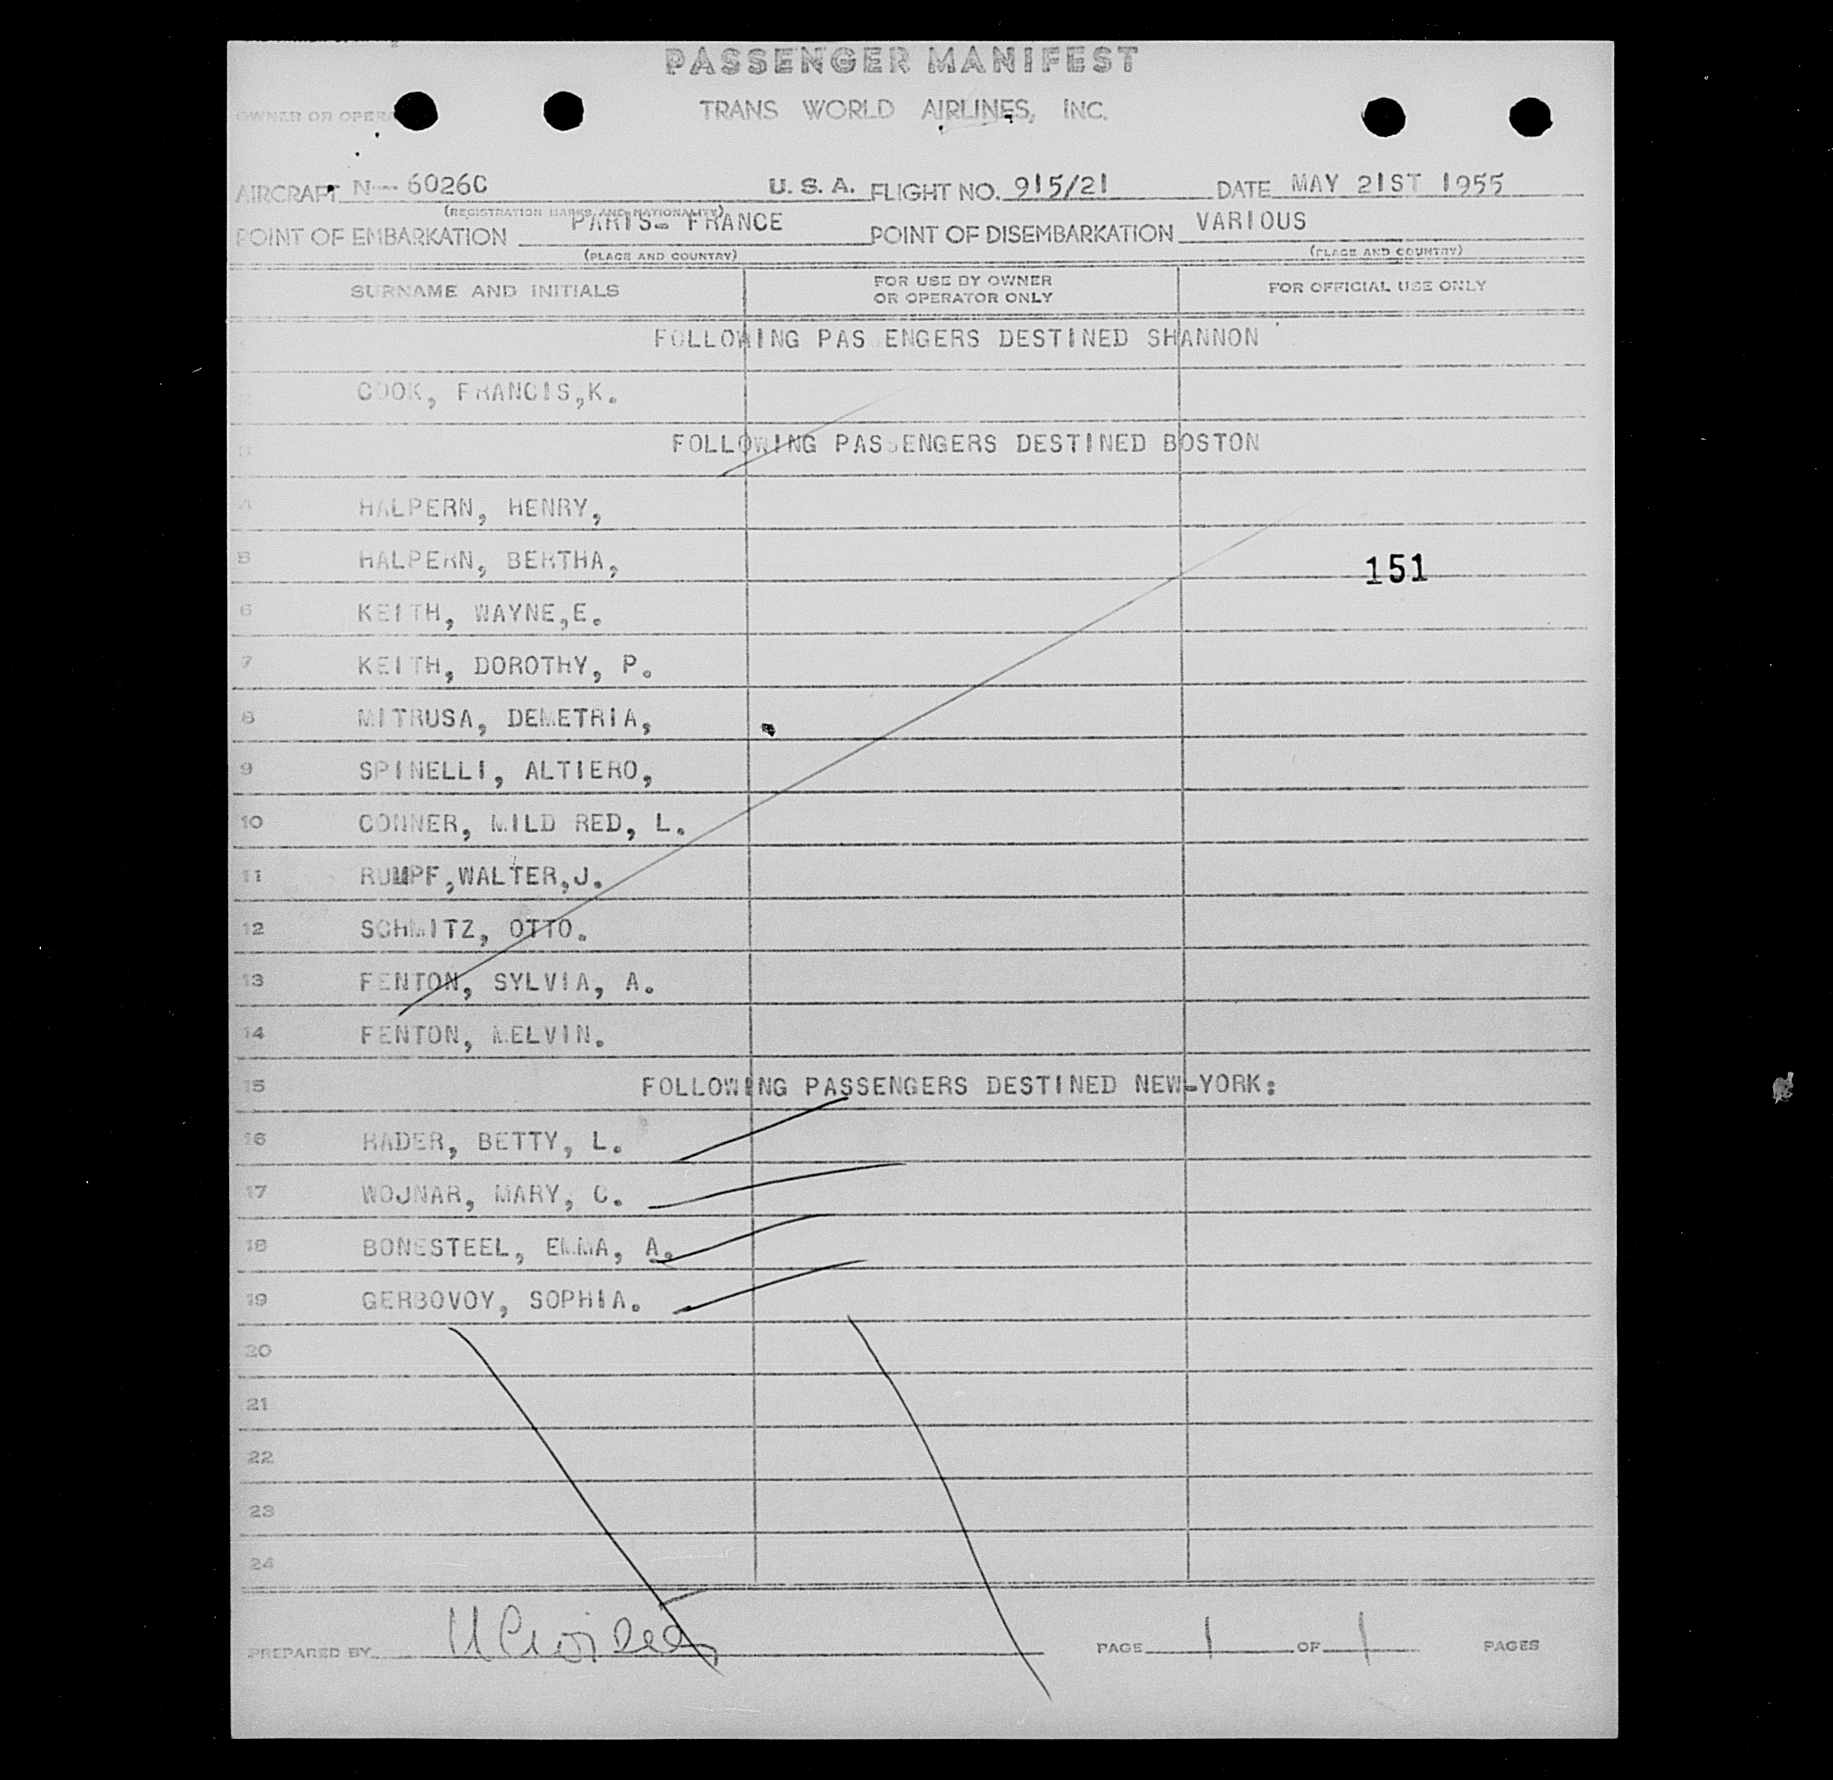 PASSENGER MANIFEST
OWNER OR OPERA
TRANS WORLD AIRLINES, INC.
AIRCRAFT N--- 6026C U. S. A. FLIGHT NO. 915/21 DATE MAY 21ST 1955
(REGISTRATION MARKS AND NATIONALITY)
POINT OF EMBARKATION PARIS- FRANCE POINT OF DISEMBARKATION VARIOUS
(PLACE AND COUNTRY) (PLACE AND COUNTRY)
SURNAME AND INITIALS FOR USE BY OWNER OR OPERATOR ONLY FOR OFFICIAL USE ONLY
FOLLOWING PASSENGERS DESTINED SHANNON
COOK, FRANCIS,K.
FOLLOWING PASSENGERS DESTINED BOSTON
4 HALPERN, HENRY,
5 HALPERN, BERTHA, 151
6 KEITH, WAYNE,E.
7 KEITH, DOROTHY, P.
8 MITRUSA, DEMETRIA,
9 SPINELLI, ALTIERO,
10 CONNER, MILD RED, L.
11 RUMPF,WALTER,J.
12 SCHMITZ, OTTO.
13 FENTON, SYLVIA, A.
14 FENTON, MELVIN.
15 FOLLOWING PASSENGERS DESTINED NEW-YORK:
16 RADER, BETTY, L.
17 WOJNAR, MARY, C.
18 BONESTEEL, EMMA, A.
19 GERBOVOY, SOPHIA.
20
21
22
23
24
PREPARED BY PAGE 1 OF 1 PAGES